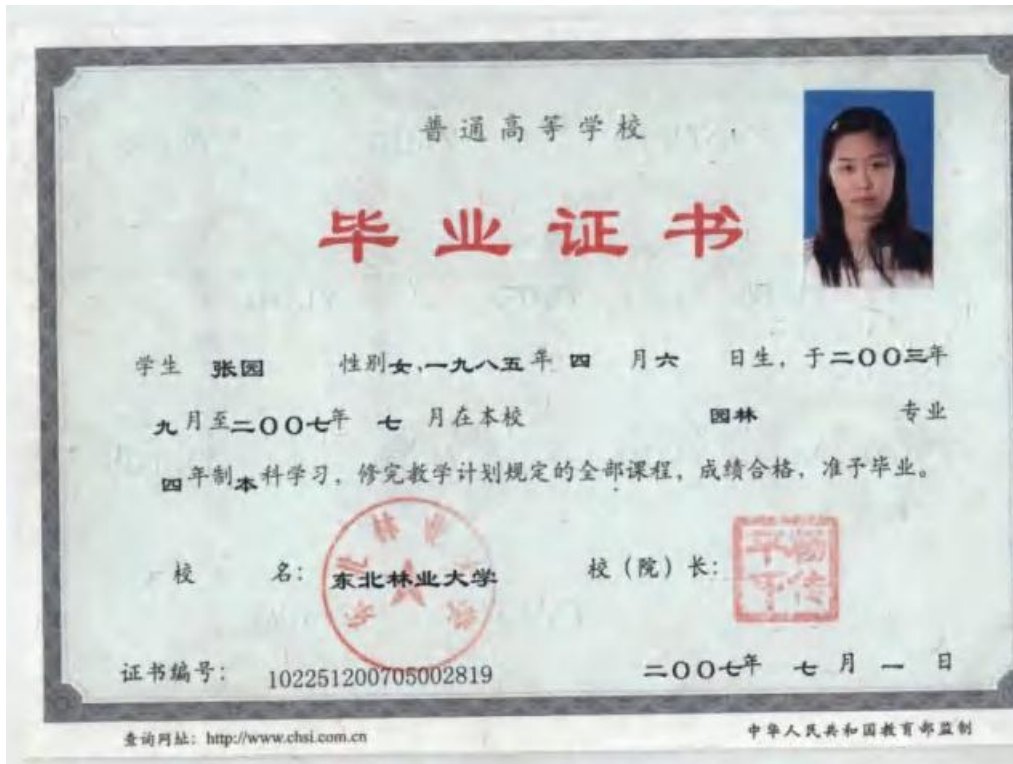 普通高等学校
毕业证书
学生 张园 性别女,一九八五年 四 月六 日生，于二〇〇三年
九月至二〇〇七年 七 月在本校 园林 专业
四年制本科学习，修完教学计划规定的全部课程，成绩合格，准予毕业。
校 名： 东北林业大学 校（院）长：
证书编号： 102251200705002819 二〇〇七年 七 月 一 日
查询网址：http://www.chsi.com.cn 中华人民共和国教育部监制